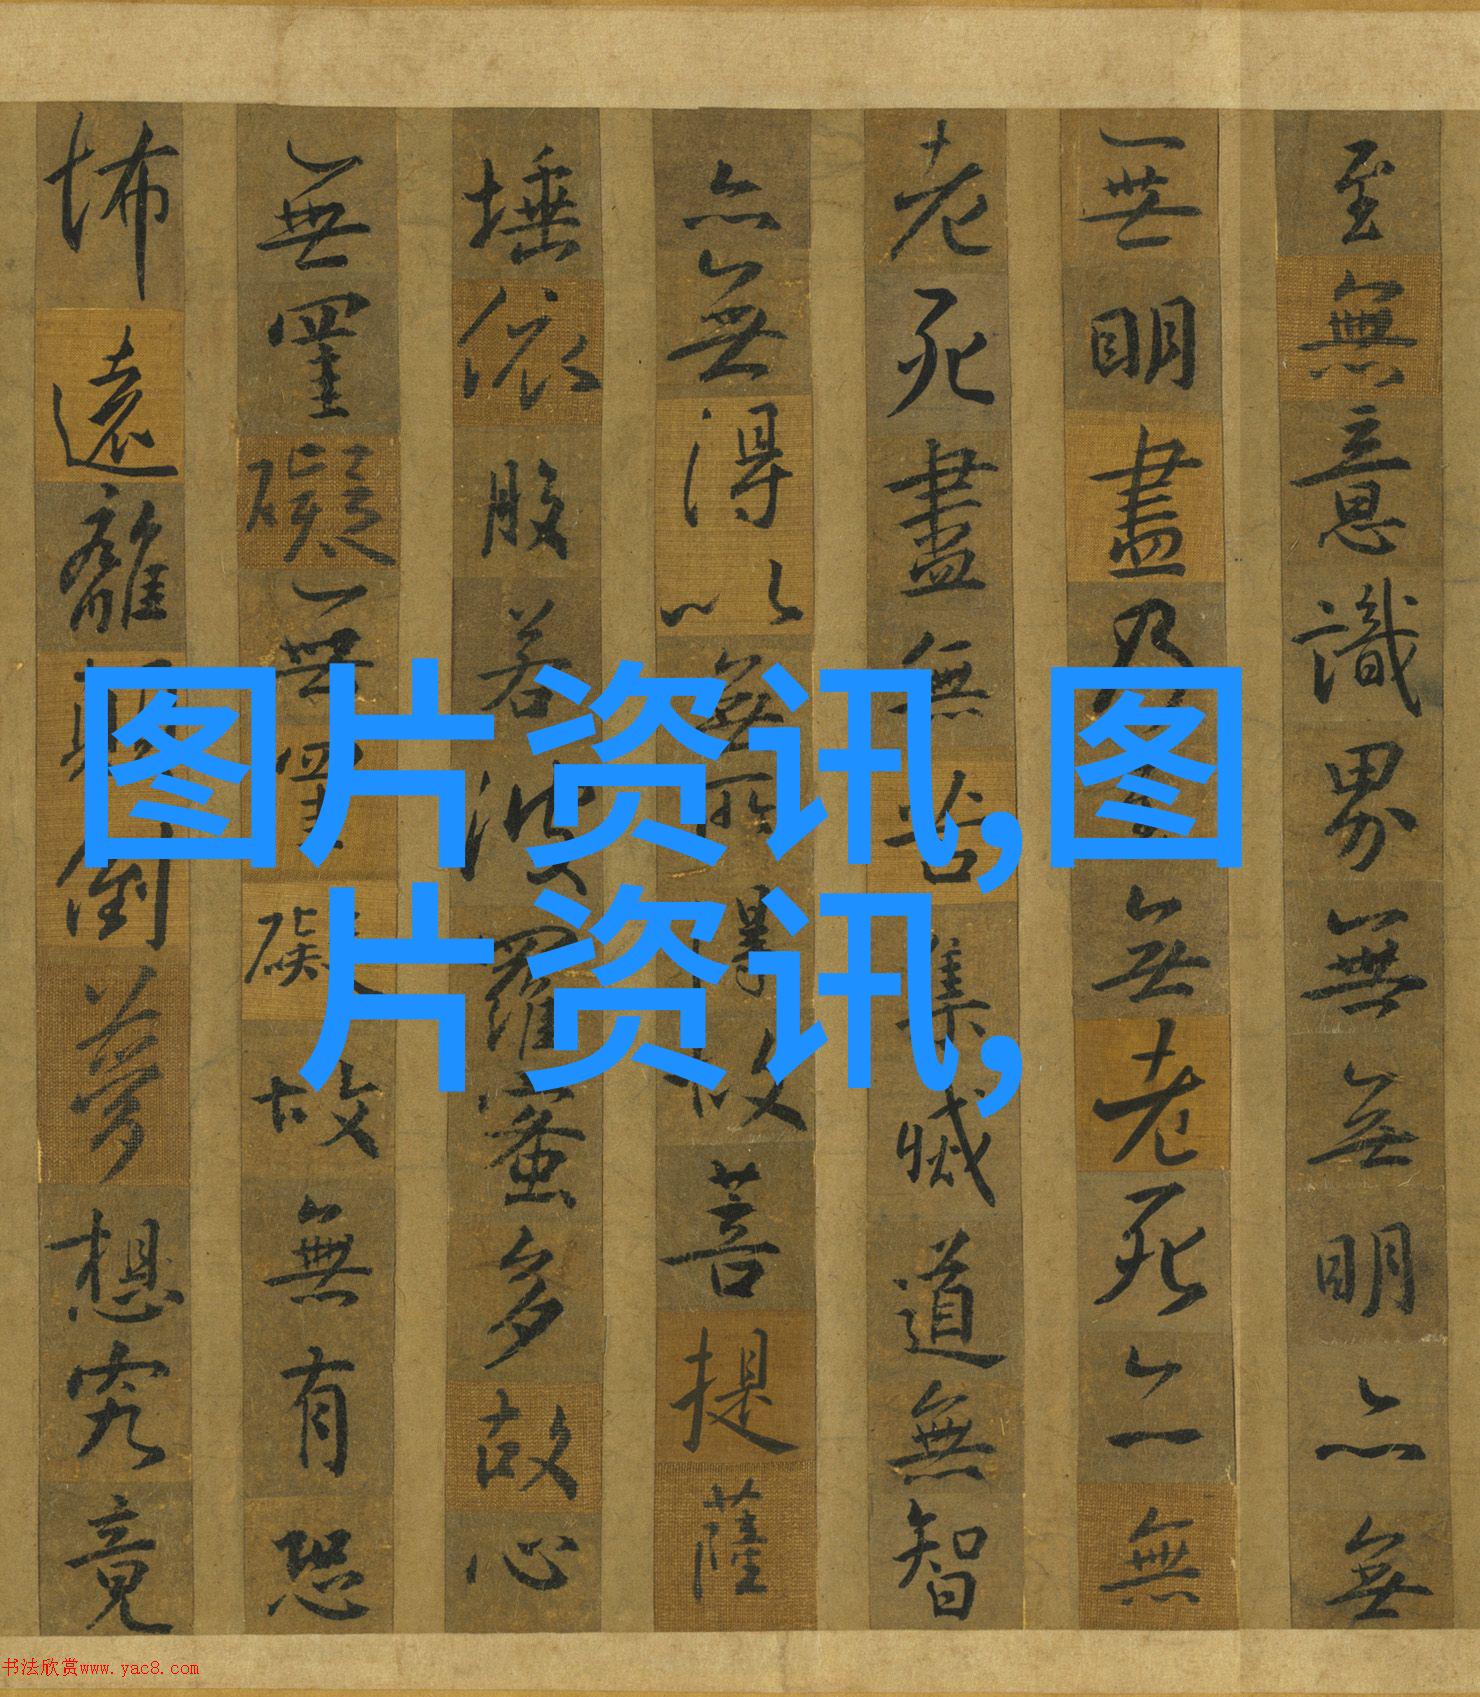 至無意識界無無明亦無
無明盡乃無老死亦無
老死盡無苦集滅道無智
亦無得以無所得故菩提薩
埵依般若波羅蜜多故心
無罣礙無罣礙故無有恐
怖遠離倒夢想究竟
图片资讯,图
片资讯,
书法欣赏www.yac8.com